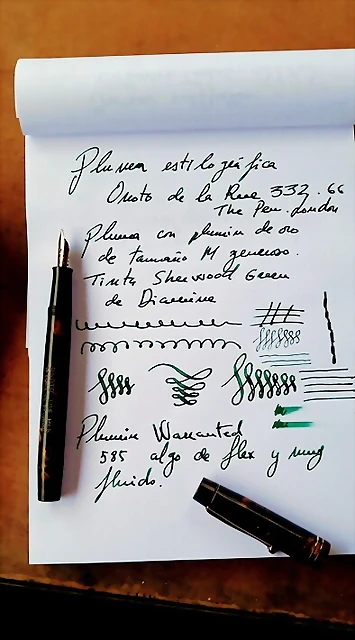 Pluma estilográfica
Onoto de la Rue 332.66
The Pen. London
Pluma con plumín de oro
de tamaño M generoso.
Tinta Sherwood Green
de Diamine
Plumín Warranted
585 algo de flex y muy
fluido.